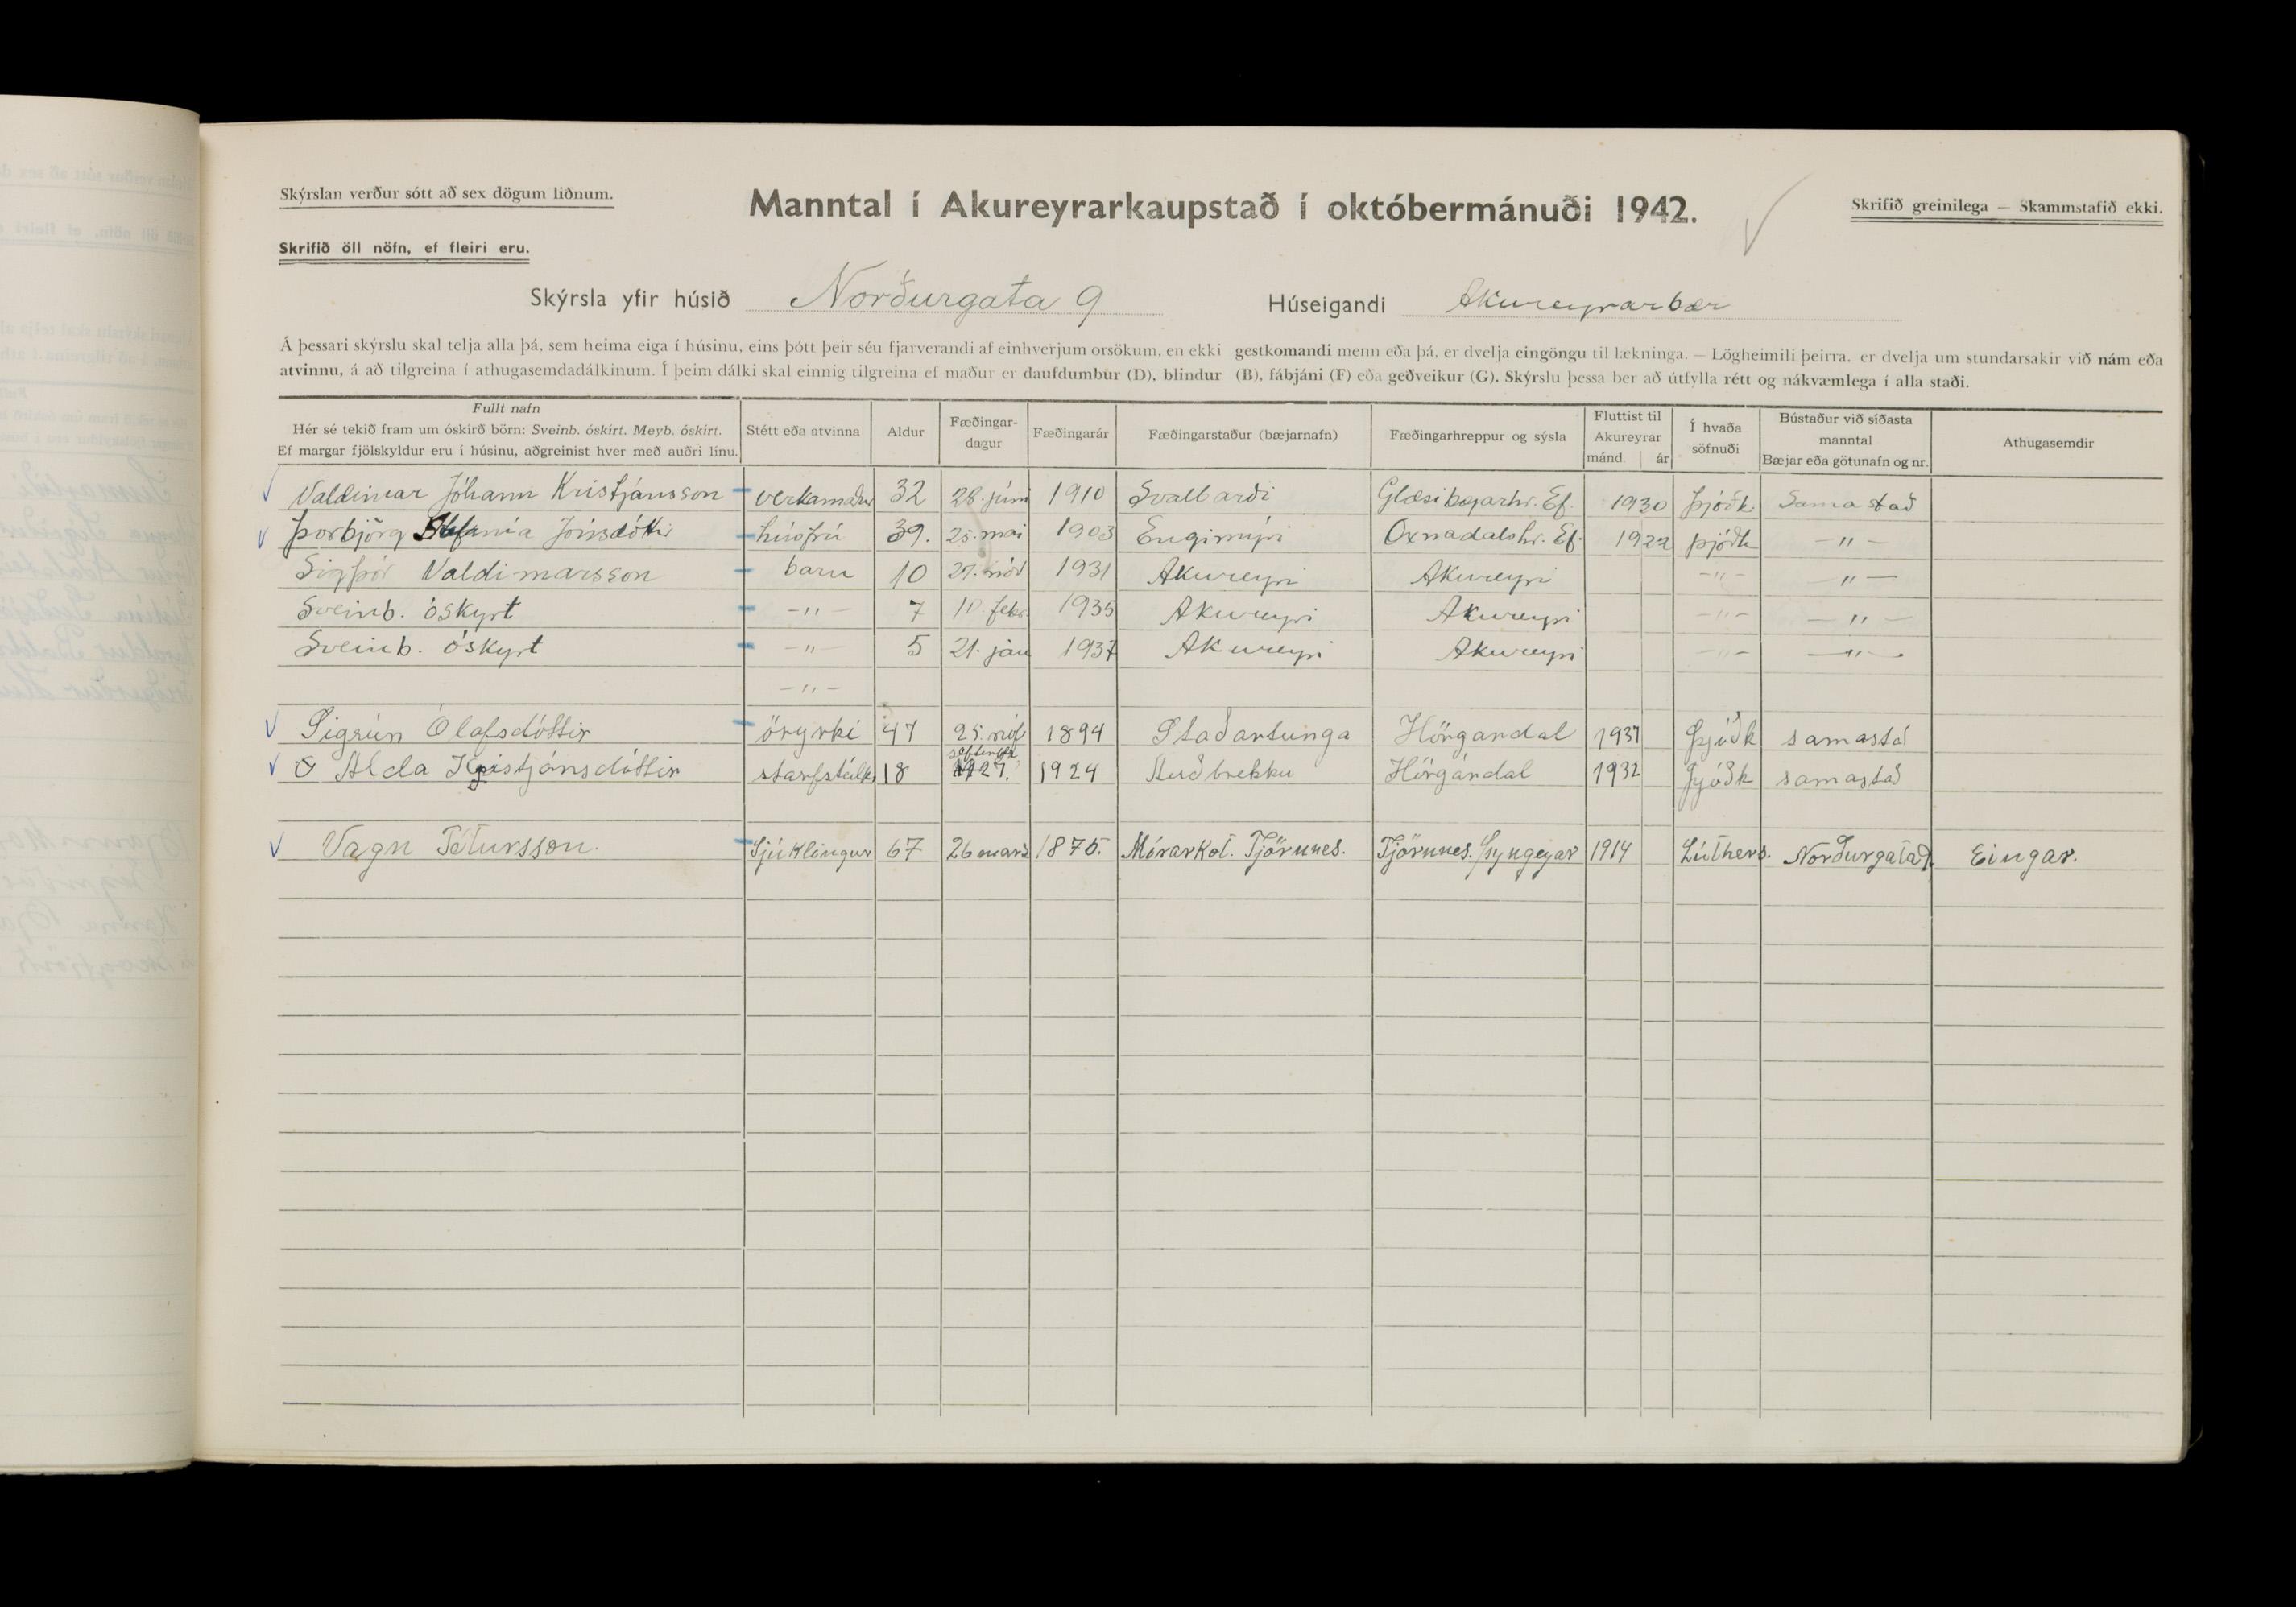 Skýrslan verður sótt að sex dögum liðnum.
Manntal í Akureyrarkaupstað í októbermánuði 1942.
Skrifið greinilega — Skammstafið ekki.
Skrifið öll nöfn, ef fleiri eru.
Skýrsla yfir húsið Norðurgata 9 Húseigandi Akureyrarbær
Á þessari skýrslu skal telja alla þá, sem heima eiga í húsinu, eins þótt þeir séu fjarverandi af einhverjum orsökum, en ekki gestkomandi menn eða þá, er dvelja eingöngu til lækninga. — Lögheimili þeirra, er dvelja um stundarsakir við nám eða
atvinnu, á að tilgreina í athugasemdadálkinum. Í þeim dálki skal einnig tilgreina ef maður er daufdumbur (D), blindur (B), fábjáni (F) eða geðveikur (G). Skýrslu þessa ber að útfylla rétt og nákvæmlega í alla staði.
Fullt nafn
Hér sé tekið fram um óskírð börn: Sveinb. óskírt. Meyb. óskírt.
Ef margar fjölskyldur eru í húsinu, aðgreinist hver með auðri línu.
Stétt eða atvinna
Aldur
Fæðingar-
dagur
Fæðingarár
Fæðingarstaður (bæjarnafn)
Fæðingarhreppur og sýsla
Fluttist til
Akureyrar
mánd. ár
Í hvaða
söfnuði
Bústaður við síðasta
manntal
Bæjar eða götunafn og nr.
Athugasemdir
Valdimar Jóhann Kristjánsson verkamaður 32 28. júní 1910 Svalbarði Glæsibæjarhr. Ef. 1930 Þjóðk. Sama stað
Þorbjörg Stefanía Jónsdóttir húsfrú 39. 25. maí 1903 Engimýri Öxnadalshr. Ef. 1922 Þjóðk — " —
Sigþór Valdimarsson barn 10 27. nóv 1931 Akureyri Akureyri — " — — " —
Sveinb. óskyrt — " — 7 10. febr. 1935 Akureyri Akureyri — " — — " —
Sveinb. óskyrt — " — 5 21. jan 1937 Akureyri Akureyri — " — — " —
— " —
Sigrún Ólafsdóttir öryrki 47 25. 1894 Staðartunga Hörgárdal 1937 Þjóðk samastað
Alda Kristjánsdóttir starfstúlk 18 september 27. 1924 Auðbrekku Hörgárdal 1932 Þjóðk samastað
Vagn Pétursson. Sjúklingur 67 26 mars 1875. Mórarkot. Tjörnnes. Tjörnnes. Þyngeyar 1914 Lúthers. Norðurgata 9. Eingar.